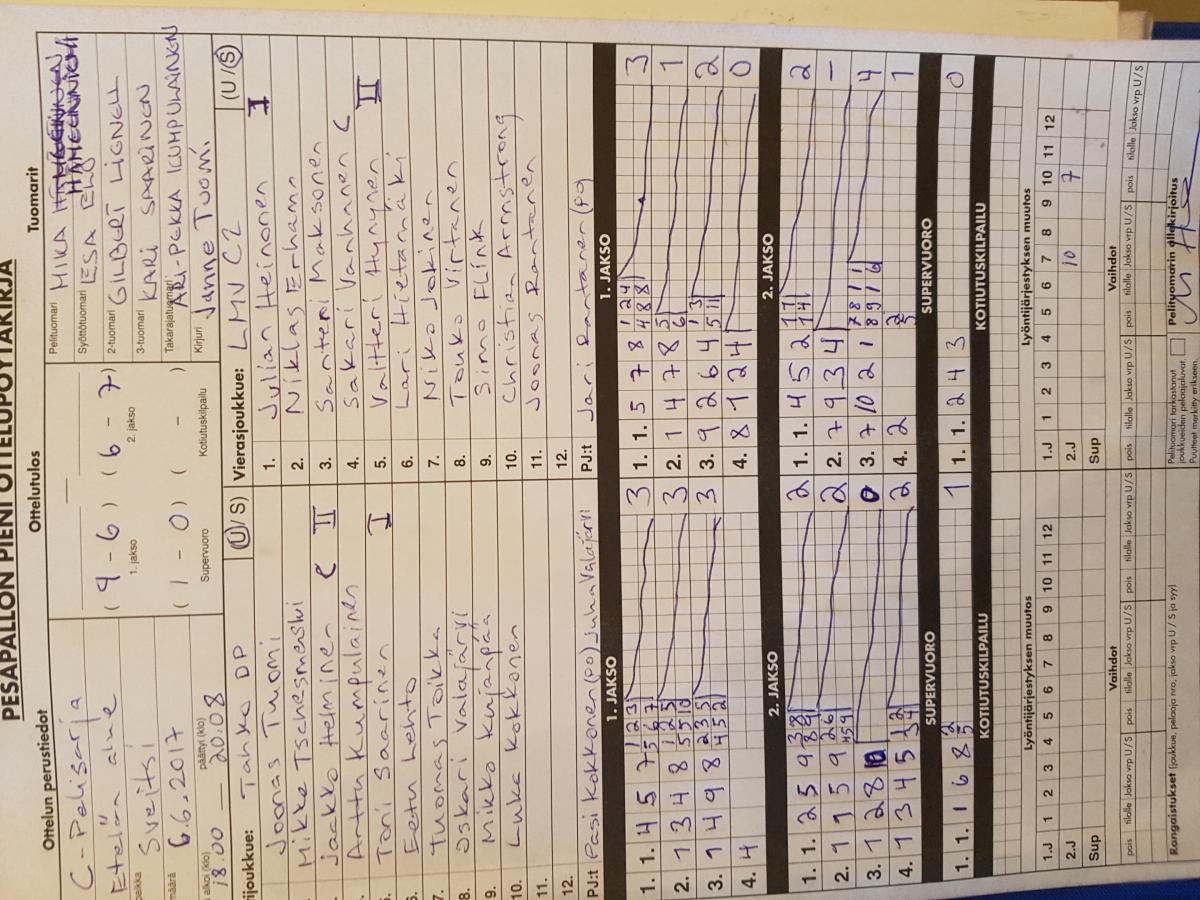 PESÄPALLON PIENI OTTELUPÖYTÄKIRJA
Ottelun perustiedot
C-Poikasarja
Etelä alue
paikka
Sveitsi
määrä
6.6.2017
alkoi (klo)
päättyi (klo)
18.00 — 20.08
Ottelutulos
( 9 - 6 ) ( 6 - 7 )
1. jakso
2. jakso
( 1 - 0 ) ( - )
Supervuoro
Kotiutuskilpailu
Tuomarit
Pelituomari MIKA
Syöttötuomari ESA
2-tuomari GILBERT LIGNELL
3-tuomari KARI SAARINEN
Takarajatuomari ARI-PEKKA KUMPULAINEN
Kirjuri Janne Tuomi
rijoukkue: Tahko DP (U/S)
Joonas Tuomi
Mikke Tschesmenski
Jaakko Helminen C II
Arttu Kumpulainen
Toni Saarinen I
Eetu Lehto
7. Tuomas Toikka
8. Iskari Valajärvi
9. Mikko Kurjanpää
10. Luka Kokkonen
11.
12.
PJ:t Pasi Kokkonen (po) Juha Valajärvi
Vierasjoukkue: LMV C2 (U/S)
1. Julian Heinonen I
2. Niklas Erhamo
3. Santeri Maksonen
4. Sakari Vanhanen C
5. Valtteri Hynynen II
6. Lari Hietamäki
7. Niko Jokinen
8. Touko Virtanen
9. Simo Flink
10. Christian Armstrong
11. Joonas Rantanen
12.
PJ:t Jari Rantanen (po)
1. JAKSO
1. 1. 4 5 7 3
2. 1 3 4 8 3
3. 1 4 9 8 3
4. 4
1. JAKSO
1. 1. 5 7 8 3
2. 1 4 7 8 1
3. 9 2 6 4 2
4. 8 1 2 4 0
2. JAKSO
1. 1. 2 5 9 2
2. 1 1 5 9 2
3. 1 2 8 10 0
4. 1 3 4 5 2
2. JAKSO
1. 1. 4 5 2 2
2. 7 9 3 4 -
3. 7 10 2 1 4
4. 2 1
SUPERVUORO
1. 1. 1 6 8 1
SUPERVUORO
1. 1. 2 4 3 0
KOTIUTUSKILPAILU
KOTIUTUSKILPAILU
Lyöntijärjestyksen muutos
1 2 3 4 5 6 7 8 9 10 11 12
1.J
2.J
Sup
Lyöntijärjestyksen muutos
1 2 3 4 5 6 7 8 9 10 11 12
1.J
2.J 10 7
Sup
Vaihdot
pois tilalle Jakso vrp U / S pois tilalle Jakso vrp U / S pois tilalle Jakso vrp U / S
Vaihdot
pois tilalle Jakso vrp U / S pois tilalle Jakso vrp U / S pois tilalle Jakso vrp U / S
Rangaistukset (joukkue, pelaaja nro, jakso vrp U / S ja syy)
Pelituomari tarkastanut
joukkueiden pelaajaluvat.
Puutteet merkitty erikseen.
Pelituomarin allekirjoitus